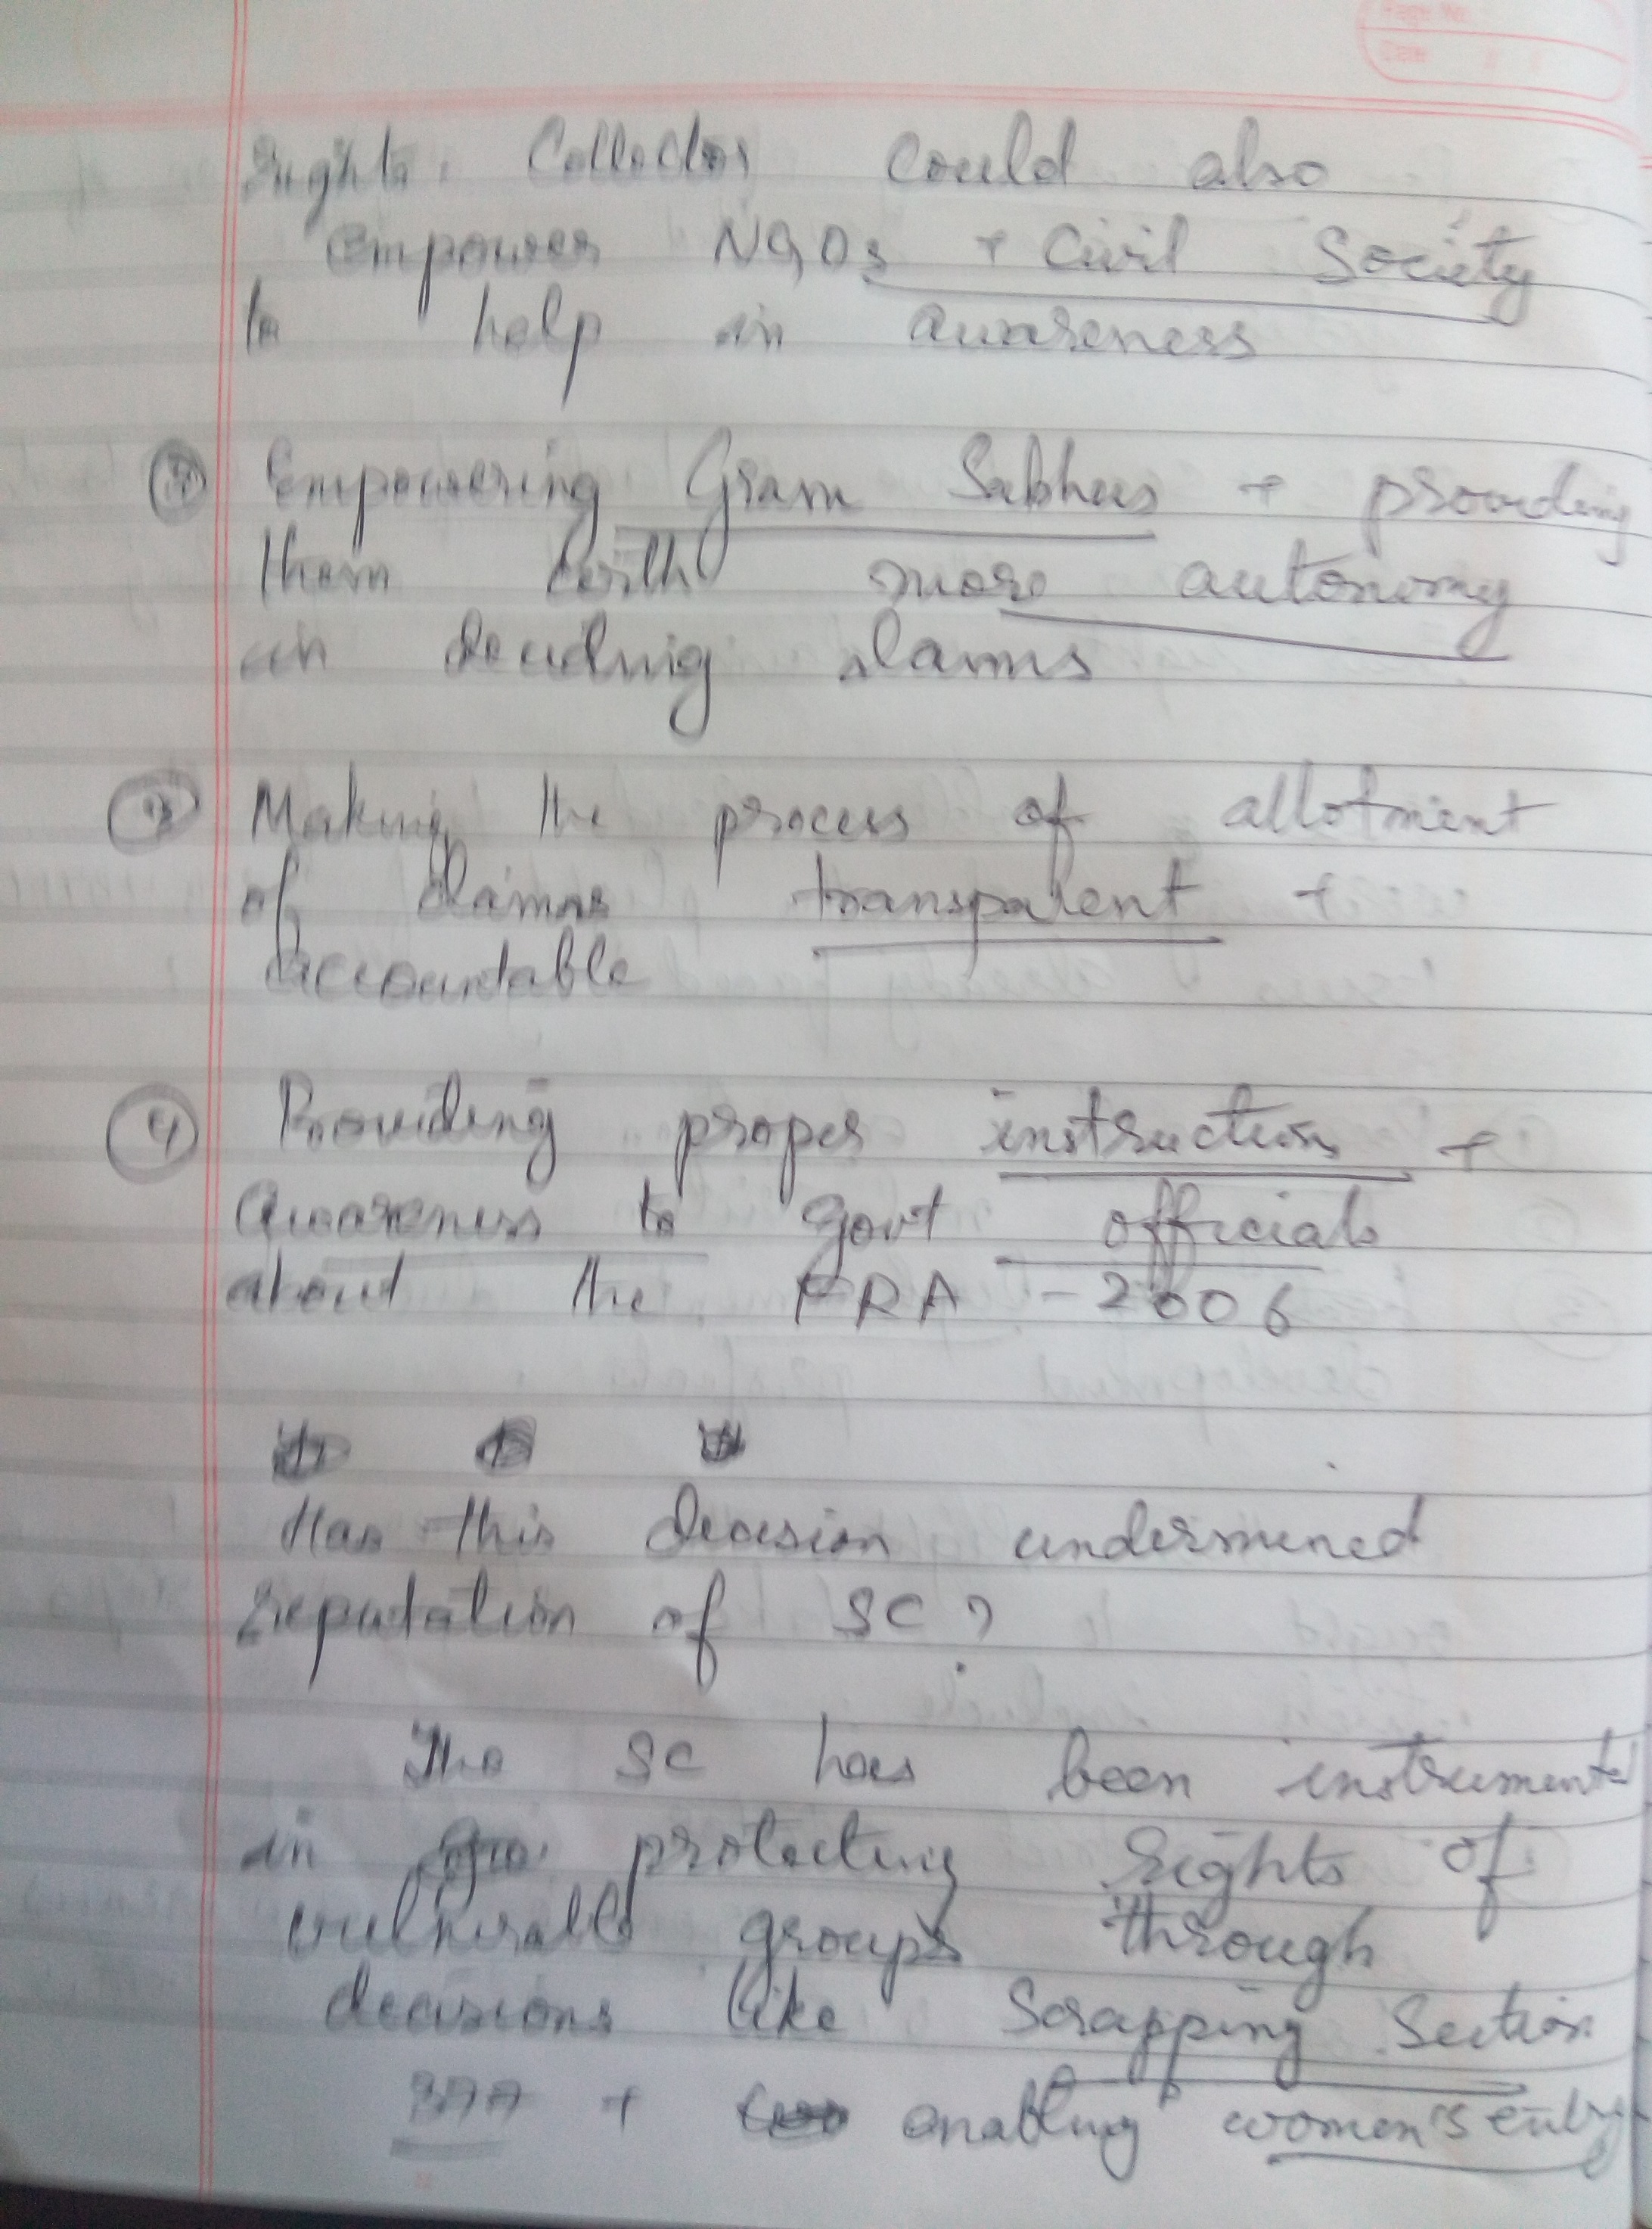 Page No.
Date / /
rights. Collector could also
empower NGOs + Civil Society
to help in awareness
② Empowering Gram Sabhas + providing
them with more autonomy
in deciding claims
③ Making the process of allotment
of claims transparent +
accountable
④ Providing proper instruction +
awareness to govt officials
about the FRA - 2006
Has this decision undermined
reputation of SC ?
The SC has been instrumental
in protecting rights of
vulnerable groups through
decisions like Scrapping Section
377 + enabling women's entry